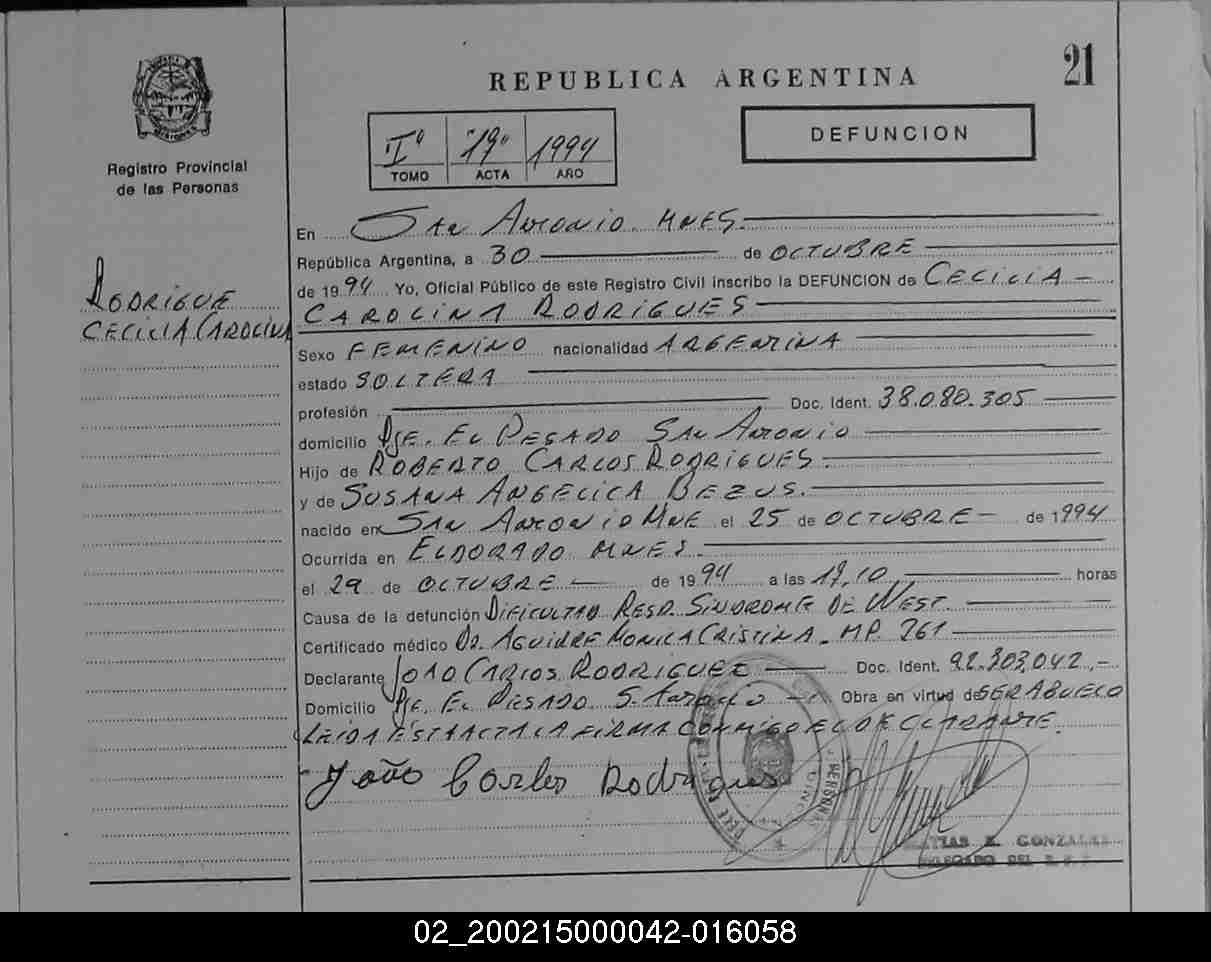 REPUBLICA ARGENTINA
21
Iº "19" 1994
TOMO ACTA AÑO
DEFUNCION
Registro Provincial
de las Personas
RODRIGUE
CECILIA CAROLINA
En SAN ANTONIO. MNES.
República Argentina, a 30 de OCTUBRE
de 1994 Yo, Oficial Público de este Registro Civil inscribo la DEFUNCION de CECILIA
CAROLINA RODRIGUES
Sexo FEMENINO nacionalidad ARGENTINA
estado SOLTERA
profesión Doc. Ident. 38.080.305
domicilio Pje. EL PESADO SAN ANTONIO
Hijo de ROBERTO CARLOS RODRIGUES.
y de SUSANA ANGELICA BEZUS.
nacido en SAN ANTONIO MNE el 25 de OCTUBRE de 1994
Ocurrida en ELDORADO MNES.
el 29 de OCTUBRE de 1994 a las 17,10 horas
Causa de la defunción DIFICULTAD RESP. SINDROME DE WEST.
Certificado médico Dr. AGUIRRE MONICA CRISTINA. MP. 261
Declarante JOAO CARLOS RODRIGUEZ Doc. Ident. 92.303,042,-
Domicilio Pje. EL PESADO S. Antonio Obra en virtud de SER ABUELO
LEIDA ESTA ACTA LA FIRMA CONMIGO EL DECLARANTE.
João Carlos Rodrigues
GONZALEZ
DELEGADO DEL
02_200215000042-016058